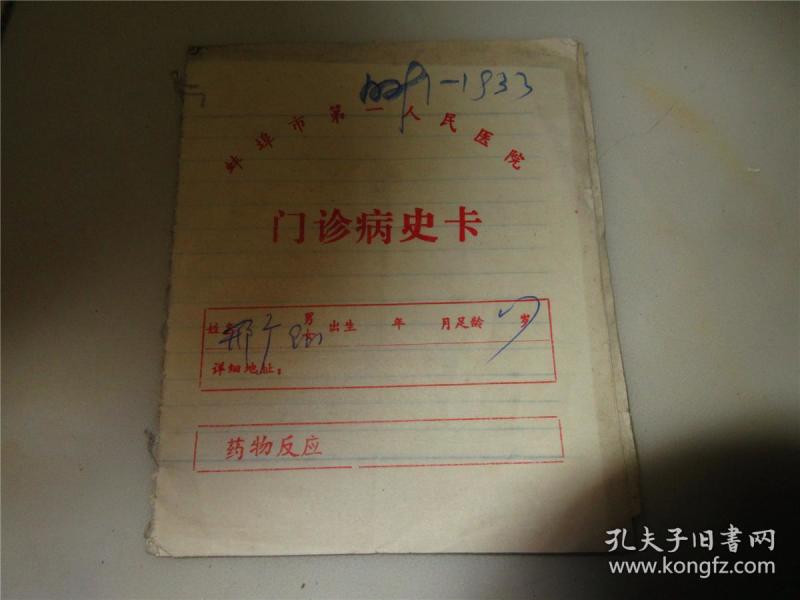 -1933
蚌埠市第一人民医院
门诊病史卡
姓名 男 出生 年 月足龄 岁
详细地址：
药物反应
孔夫子旧書网
www.kongfz.com